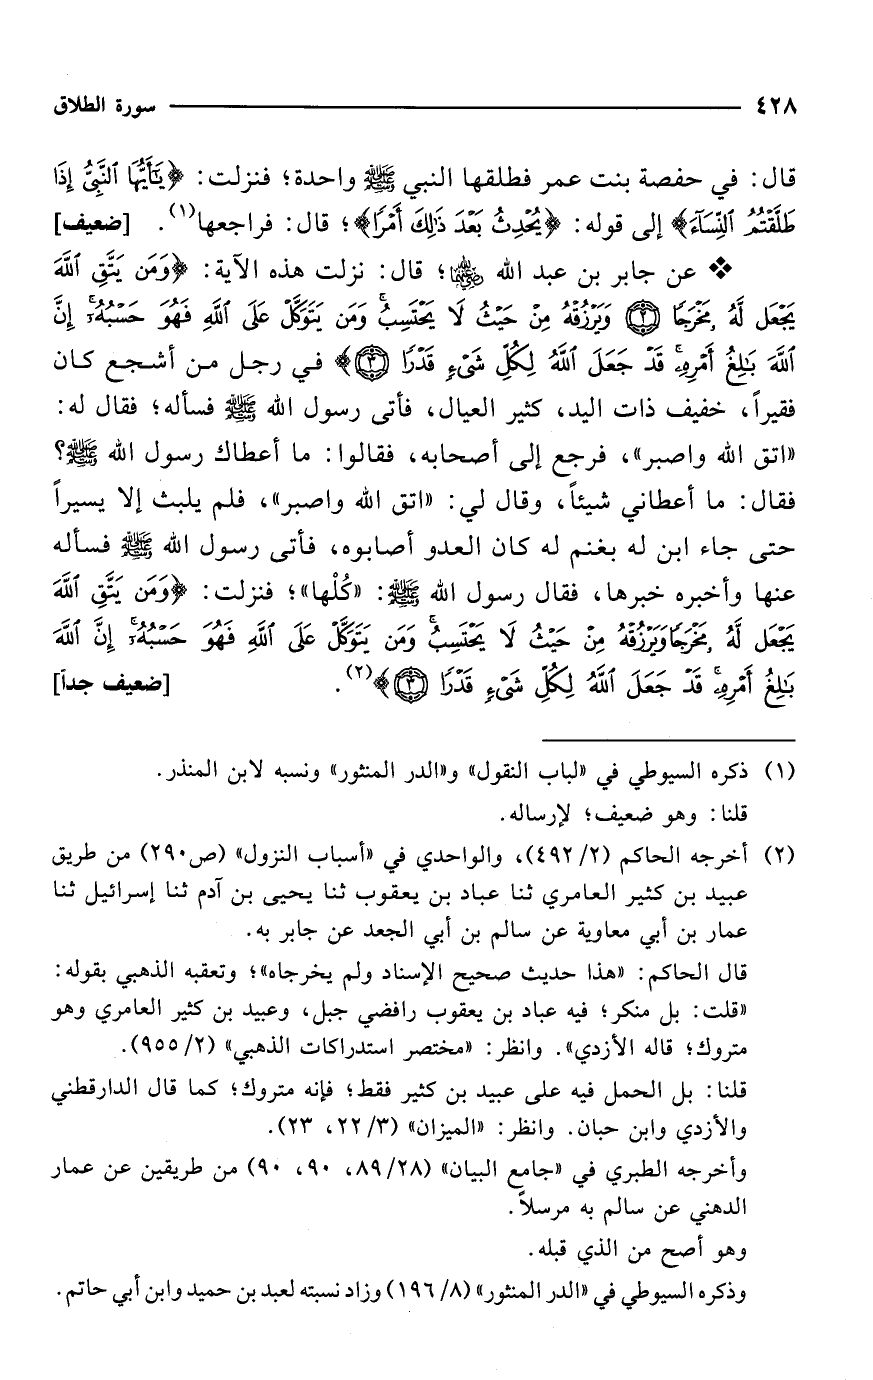 ٤٢٨ سورة الطلاق
قال: في حفصة بنت عمر فطلقها النبي ﷺ واحدة؛ فنزلت: ﴿يَٰٓأَيُّهَا ٱلنَّبِىُّ إِذَا
طَلَّقْتُمُ ٱلنِّسَآءَ﴾ إلى قوله: ﴿يُحْدِثُ بَعْدَ ذَٰلِكَ أَمْرًا﴾؛ قال: فراجعها(١). [ضعيف]
❖ عن جابر بن عبد الله ﵁؛ قال: نزلت هذه الآية: ﴿وَمَن يَتَّقِ ٱللَّهَ
يَجْعَل لَّهُۥ مَخْرَجًا ۝٢ وَيَرْزُقْهُ مِنْ حَيْثُ لَا يَحْتَسِبُ ۚ وَمَن يَتَوَكَّلْ عَلَى ٱللَّهِ فَهُوَ حَسْبُهُۥٓ ۚ إِنَّ
ٱللَّهَ بَٰلِغُ أَمْرِهِۦ ۚ قَدْ جَعَلَ ٱللَّهُ لِكُلِّ شَىْءٍ قَدْرًا ۝٣﴾ في رجل من أشجع كان
فقيراً، خفيف ذات اليد، كثير العيال، فأتى رسول الله ﷺ فسأله؛ فقال له:
«اتق الله واصبر»، فرجع إلى أصحابه، فقالوا: ما أعطاك رسول الله ﷺ؟
فقال: ما أعطاني شيئاً، وقال لي: «اتق الله واصبر»، فلم يلبث إلا يسيراً
حتى جاء ابن له بغنم له كان العدو أصابوه، فأتى رسول الله ﷺ فسأله
عنها وأخبره خبرها، فقال رسول الله ﷺ: «كُلْها»؛ فنزلت: ﴿وَمَن يَتَّقِ ٱللَّهَ
يَجْعَل لَّهُۥ مَخْرَجًا وَيَرْزُقْهُ مِنْ حَيْثُ لَا يَحْتَسِبُ ۚ وَمَن يَتَوَكَّلْ عَلَى ٱللَّهِ فَهُوَ حَسْبُهُۥٓ ۚ إِنَّ ٱللَّهَ
بَٰلِغُ أَمْرِهِۦ ۚ قَدْ جَعَلَ ٱللَّهُ لِكُلِّ شَىْءٍ قَدْرًا ۝٣﴾(٢). [ضعيف جداً]
(١) ذكره السيوطي في «لباب النقول» و«الدر المنثور» ونسبه لابن المنذر.
قلنا: وهو ضعيف؛ لإرساله.
(٢) أخرجه الحاكم (٢/ ٤٩٢)، والواحدي في «أسباب النزول» (ص٢٩٠) من طريق
عبيد بن كثير العامري ثنا عباد بن يعقوب ثنا يحيى بن آدم ثنا إسرائيل ثنا
عمار بن أبي معاوية عن سالم بن أبي الجعد عن جابر به.
قال الحاكم: «هذا حديث صحيح الإسناد ولم يخرجاه»؛ وتعقبه الذهبي بقوله:
«قلت: بل منكر؛ فيه عباد بن يعقوب رافضي جبل، وعبيد بن كثير العامري وهو
متروك؛ قاله الأزدي». وانظر: «مختصر استدراكات الذهبي» (٢/ ٩٥٥).
قلنا: بل الحمل فيه على عبيد بن كثير فقط؛ فإنه متروك؛ كما قال الدارقطني
والأزدي وابن حبان. وانظر: «الميزان» (٣/ ٢٢، ٢٣).
وأخرجه الطبري في «جامع البيان» (٢٨/ ٨٩، ٩٠، ٩٠) من طريقين عن عمار
الدهني عن سالم به مرسلاً.
وهو أصح من الذي قبله.
وذكره السيوطي في «الدر المنثور» (٨/ ١٩٦) وزاد نسبته لعبد بن حميد وابن أبي حاتم.